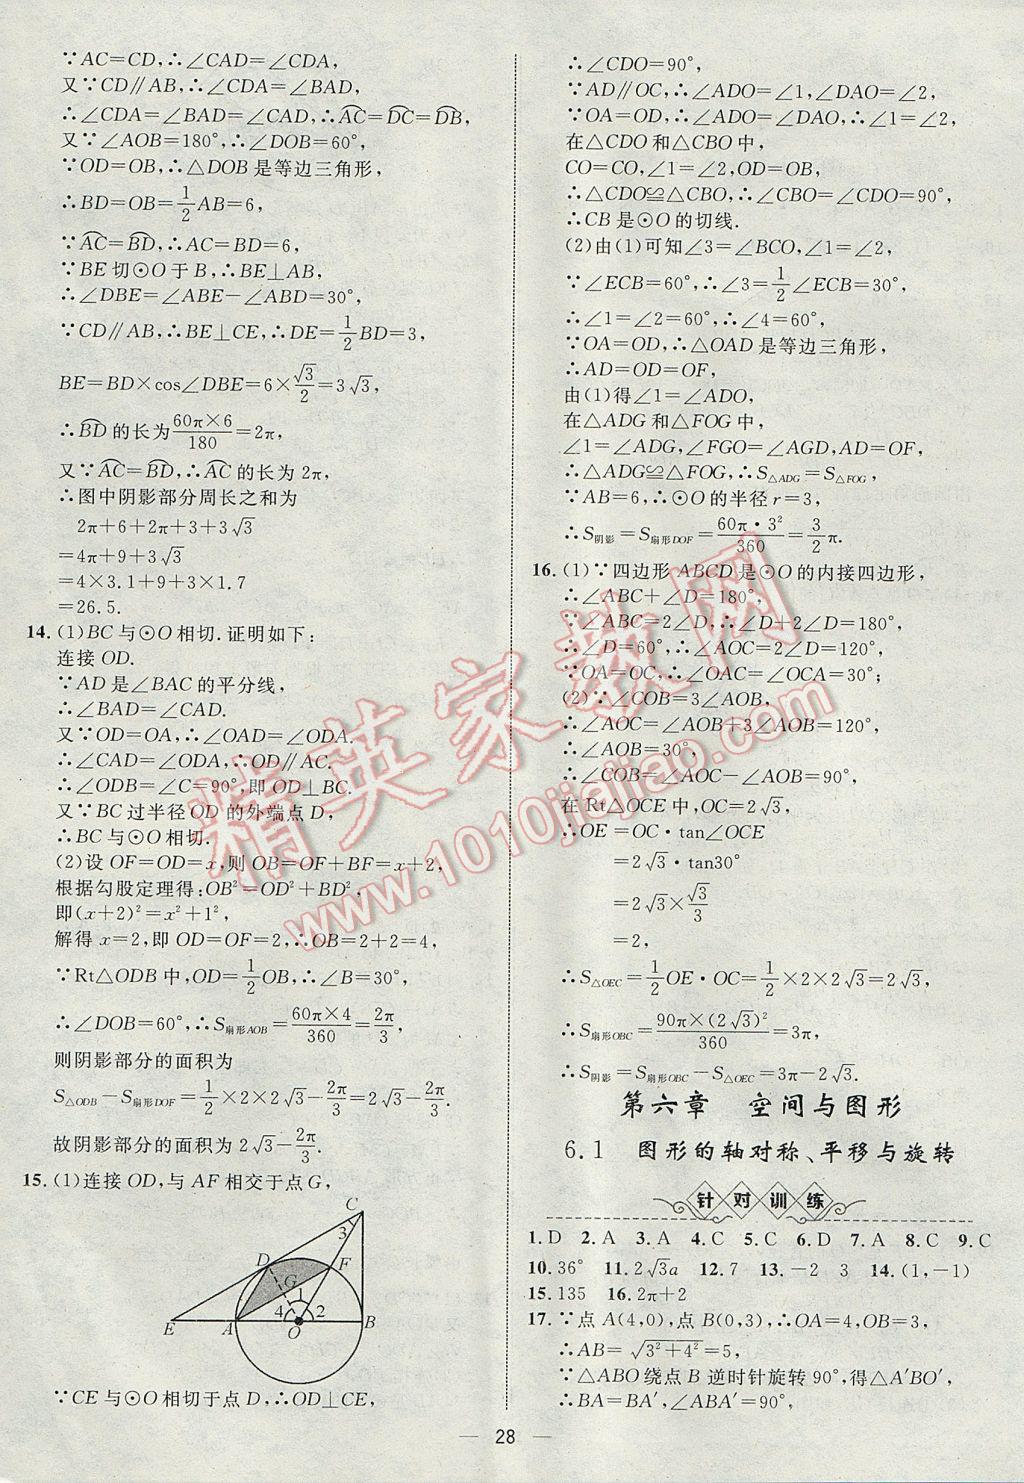 ∵AC=CD,∴∠CAD=∠CDA,
又∵CD∥AB,∴∠CDA=∠BAD,
∴∠CDA=∠BAD=∠CAD,∴AC=DC=DB,
又∵∠AOB=180°,∴∠DOB=60°,
∵OD=OB,∴△DOB是等边三角形,
∴BD=OB=1/2AB=6,
∵AC=BD,∴AC=BD=6,
∵BE切⊙O于B,∴BE⊥AB,
∴∠DBE=∠ABE-∠ABD=30°,
∵CD∥AB,∴BE⊥CE,∴DE=1/2BD=3,
BE=BD×cos∠DBE=6×√3/2=3√3,
∴BD的长为60π×6/180=2π,
又∵AC=BD,∴AC的长为2π,
∴图中阴影部分周长之和为
2π+6+2π+3+3√3
=4π+9+3√3
=4×3.1+9+3×1.7
=26.5.
14.(1)BC与⊙O相切.证明如下:
连接OD.
∵AD是∠BAC的平分线,
∴∠BAD=∠CAD.
又∵OD=OA,∴∠OAD=∠ODA.
∴∠CAD=∠ODA,∴OD∥AC.
∴∠ODB=∠C=90°,即OD⊥BC.
又∵BC过半径OD的外端点D,
∴BC与⊙O相切.
(2)设OF=OD=x,则OB=OF+BF=x+2,
根据勾股定理得:OB²=OD²+BD²,
即(x+2)²=x²+1²,
解得x=2,即OD=OF=2,∴OB=2+2=4,
∵Rt△ODB中,OD=1/2OB,∴∠B=30°,
∴∠DOB=60°,∴S扇形AOB=60π×4/360=2π/3,
则阴影部分的面积为
S△ODB-S扇形DOF=1/2×2×2√3-2π/3=2√3-2π/3.
故阴影部分的面积为2√3-2π/3.
15.(1)连接OD,与AF相交于点G,
C
3
D
F
G
1
4
2
E
A
O
B
∵CE与⊙O相切于点D,∴OD⊥CE,
∴∠CDO=90°,
∵AD∥OC,∴∠ADO=∠1,∠DAO=∠2,
∵OA=OD,∴∠ADO=∠DAO,∴∠1=∠2,
在△CDO和△CBO中,
CO=CO,∠1=∠2,OD=OB,
∴△CDO≌△CBO,∴∠CBO=∠CDO=90°,
∴CB是⊙O的切线.
(2)由(1)可知∠3=∠BCO,∠1=∠2,
∵∠ECB=60°,∴∠3=1/2∠ECB=30°,
∴∠1=∠2=60°,∴∠4=60°,
∵OA=OD,∴△OAD是等边三角形,
∴AD=OD=OF,
由(1)得∠1=∠ADO,
在△ADG和△FOG中,
∠1=∠ADG,∠FGO=∠AGD,AD=OF,
∴△ADG≌△FOG,∴S△ADG=S△FOG,
∵AB=6,∴⊙O的半径r=3,
∴S阴影=S扇形DOF=60π·3²/360=3/2π.
16.(1)∵四边形ABCD是⊙O的内接四边形,
∴∠ABC+∠D=180°,
∵∠ABC=2∠D,∴∠D+2∠D=180°,
∴∠D=60°,∴∠AOC=2∠D=120°,
∵OA=OC,∴∠OAC=∠OCA=30°;
(2)∵∠COB=3∠AOB,
∴∠AOC=∠AOB+3∠AOB=120°,
∴∠AOB=30°,
∴∠COB=∠AOC-∠AOB=90°,
在Rt△OCE中,OC=2√3,
∴OE=OC·tan∠OCE
=2√3·tan30°
=2√3×√3/3
=2,
∴S△OEC=1/2OE·OC=1/2×2×2√3=2√3,
∴S扇形OBC=90π×(2√3)²/360=3π,
∴S阴影=S扇形OBC-S△OEC=3π-2√3.
第六章 空间与图形
6.1 图形的轴对称、平移与旋转
针对训练
1.D 2.A 3.A 4.C 5.C 6.D 7.A 8.C 9.C
10.36° 11.2√3a 12.7 13.-2 3 14.(1,-1)
15.135 16.2π+2
17.∵点A(4,0),点B(0,3),∴OA=4,OB=3,
∴AB=√(3²+4²)=5,
∵△ABO绕点B逆时针旋转90°,得△A′BO′,
∴BA=BA′,∠ABA′=90°,
— 28 —
精英家教网
www.1010jiajiao.com